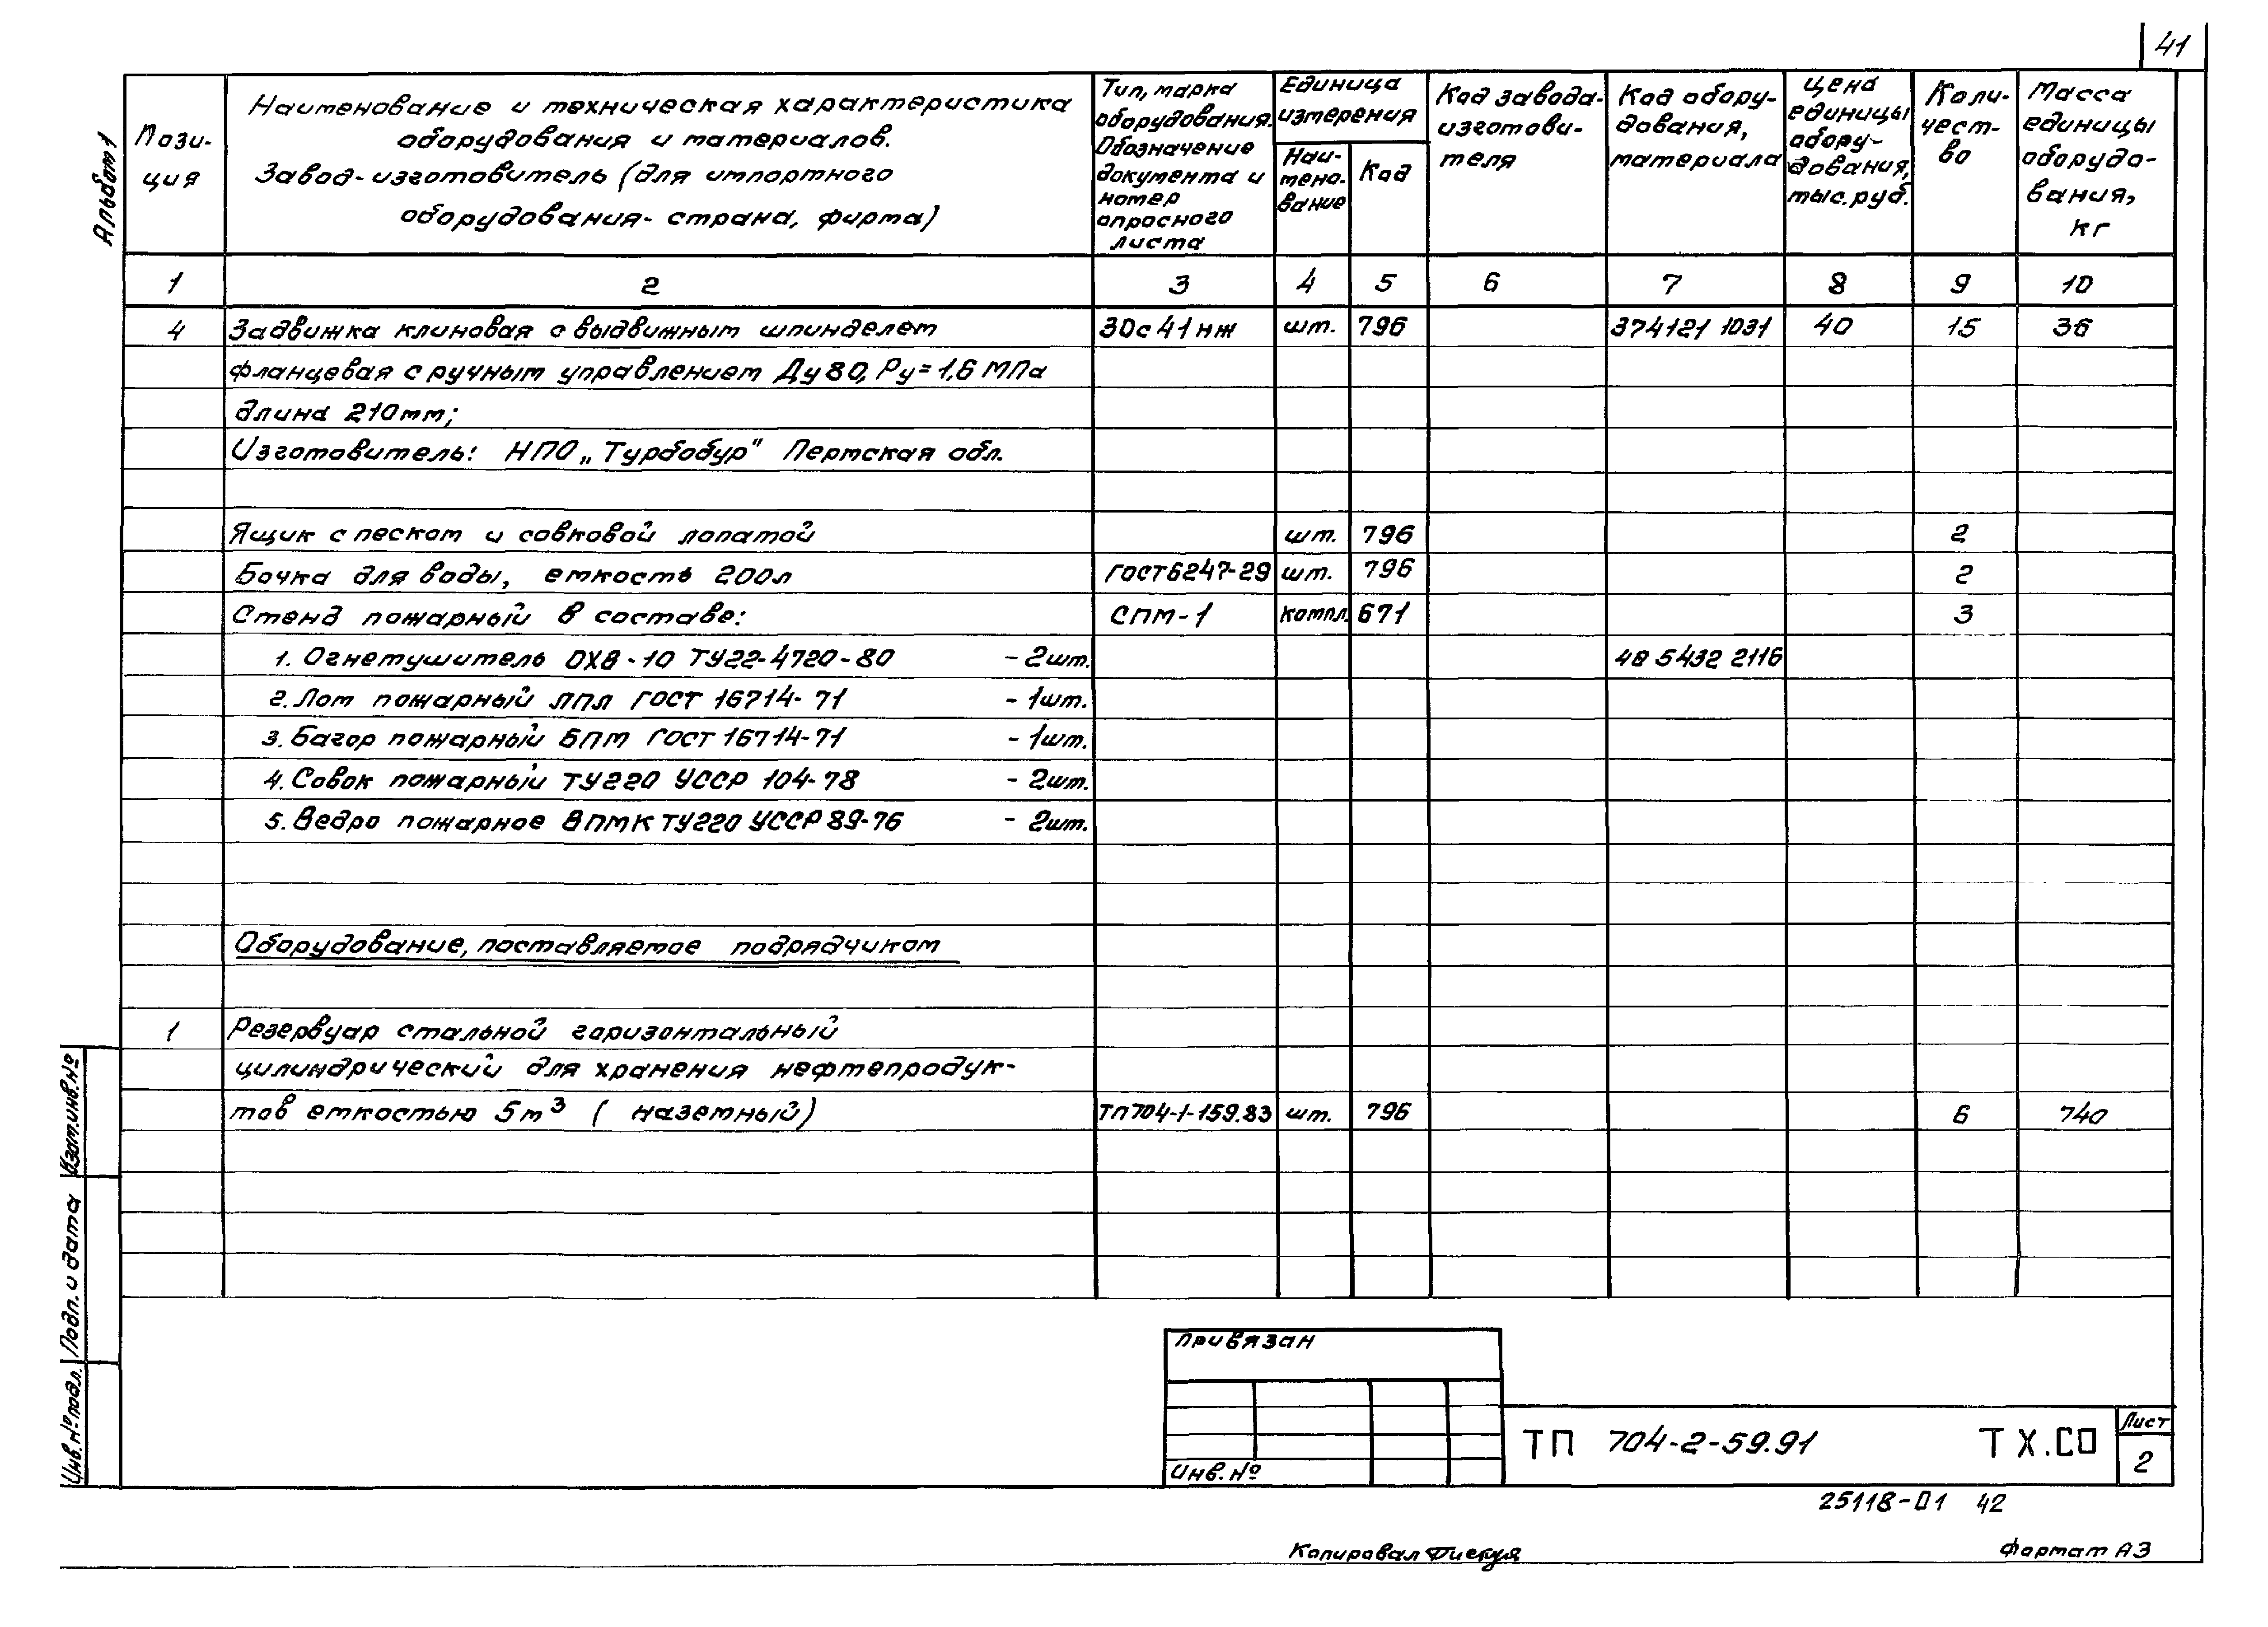 41
Альбом 1
Пози-
ция
Наименование и техническая характеристика
оборудования и материалов.
Завод-изготовитель (для импортного
оборудования- страна, фирма)
Тип, марка
оборудования.
Обозначение
документа и
номер
опросного
листа
Единица
измерения
Наи-
мено-
вание
Код
Код завода-
изготови-
теля
Код обору-
дования,
материала
Цена
единицы
обору-
дования,
тыс.руб.
Коли-
чест-
во
Масса
единицы
оборудо-
вания,
кг
1 2 3 4 5 6 7 8 9 10
4 Задвижка клиновая с выдвижным шпинделем 30с 41 нж шт. 796 374121 1031 40 15 36
фланцевая с ручным управлением Ду 80, Ру = 1,6 МПа
длина 210мм;
Изготовитель: НПО „Турбобур" Пермская обл.
Ящик с песком и совковой лопатой шт. 796 2
Бочка для воды, емкость 200л ГОСТ 6247-29 шт. 796 2
Стенд пожарный в составе: СПМ-1 компл. 671 3
1. Огнетушитель ОХВ-10 ТУ22-4720-80 - 2шт. 48 5432 2116
2. Лом пожарный ЛПЛ ГОСТ 16714-71 - 1шт.
3. Багор пожарный БПМ ГОСТ 16714-71 - 1шт.
4. Совок пожарный ТУ220 УССР 104-78 - 2шт.
5. Ведро пожарное ВПМК ТУ220 УССР 89-76 - 2шт.
Оборудование, поставляемое подрядчиком
1 Резервуар стальной горизонтальный
цилиндрический для хранения нефтепродук-
тов емкостью 5м³ ( наземный) ТП 704-1-159.83 шт. 796 6 740
Взам.инв.№
Подп. и дата
Инв.№ подл.
Привязан
Инв. №
ТП 704-2-59.91 ТХ.СО
Лист
2
25118-01 42
Копировал
Формат А3